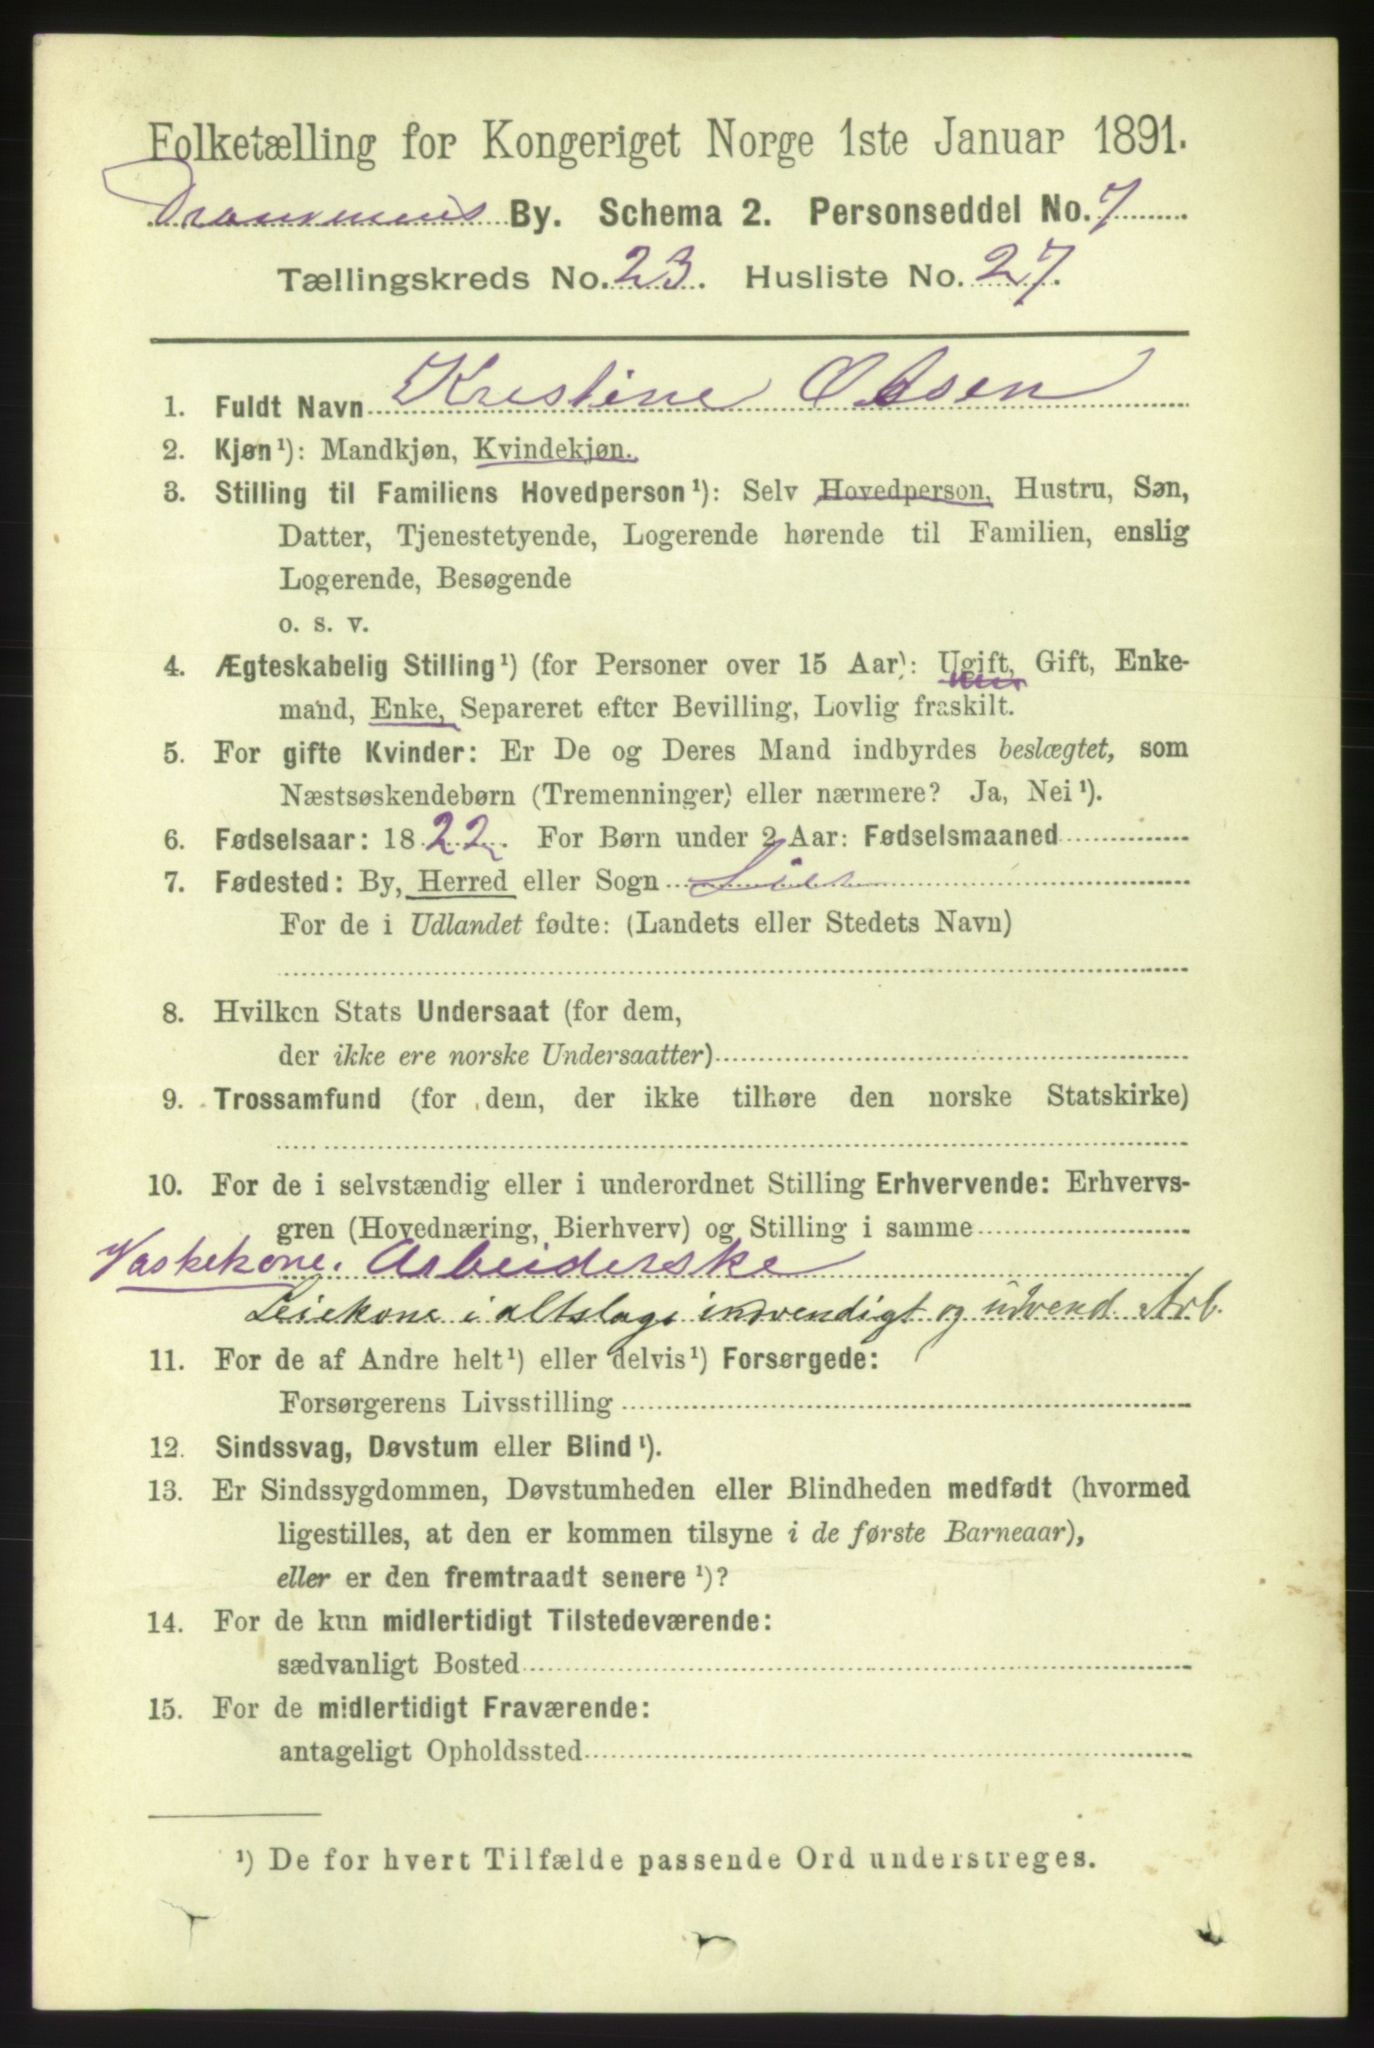 Folketælling for Kongeriget Norge 1ste Januar 1891.
Drammens By. Schema 2. Personseddel No. 7
Tællingskreds No. 23. Husliste No. 27.
1. Fuldt Navn Kristine Olsen
2. Kjøn¹): Mandkjøn, Kvindekjøn.
3. Stilling til Familiens Hovedperson¹): Selv Hovedperson, Hustru, Søn,
Datter, Tjenestetyende, Logerende hørende til Familien, enslig
Logerende, Besøgende
o. s. v.
4. Ægteskabelig Stilling¹) (for Personer over 15 Aar): Ugift, Gift, Enke-
mand, Enke, Separeret efter Bevilling, Lovlig fraskilt.
5. For gifte Kvinder: Er De og Deres Mand indbyrdes beslægtet, som
Næstsøskendebørn (Tremenninger) eller nærmere? Ja, Nei¹).
6. Fødselsaar: 1822. For Børn under 2 Aar: Fødselsmaaned
7. Fødested: By, Herred eller Sogn
For de i Udlandet fødte: (Landets eller Stedets Navn)
8. Hvilken Stats Undersaat (for dem,
der ikke ere norske Undersaatter)
9. Trossamfund (for dem, der ikke tilhøre den norske Statskirke)
10. For de i selvstændig eller i underordnet Stilling Erhvervende: Erhvervs-
gren (Hovednæring, Bierhverv) og Stilling i samme
Vaskekone. Arbeiderske
Leiekone i altslags indvendigt og udvend. Arb.
11. For de af Andre helt¹) eller delvis¹) Forsørgede:
Forsørgerens Livsstilling
12. Sindssvag, Døvstum eller Blind¹).
13. Er Sindssygdommen, Døvstumheden eller Blindheden medfødt (hvormed
ligestilles, at den er kommen tilsyne i de første Barneaar),
eller er den fremtraadt senere¹)?
14. For de kun midlertidigt Tilstedeværende:
sædvanligt Bosted
15. For de midlertidigt Fraværende:
antageligt Opholdssted
¹) De for hvert Tilfælde passende Ord understreges.